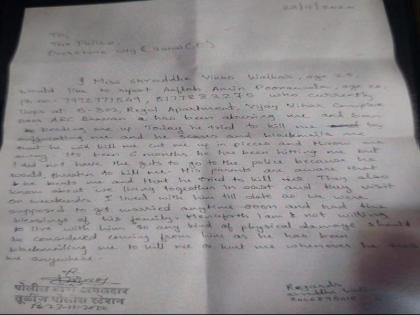 23/11/2020
To,
The Police
I Miss Shraddha Vikas Walkar, age 25,
would like to report Aaftab Amin Poonawala, age 26,
who currently
lives at B-302, Regal Apartment, Vijay Vihar Complex
near ARC Bhavan has been abusing me and been
beating me up. Today he tried to kill me by
suffocating me and he scares and blackmails me
that he will kill me, cut me up in pieces and throw me
away. Its been 6 months he has been hitting me but
I did not have the guts to go to the police because he
would threaten to kill me. His parents are aware that
he beats me and that he tried to kill me. They also
know about we living together in and they visit
on weekends. I lived with him till date as we were
supposed to get married anytime soon and had the
blessings of his family. Henceforth I am not willing
to live with him so any kind of physical damage should
be considered coming from him as he has been
blackmailing me to kill me or hurt me whenever he sees
me anywhere.
Regards
पोलीस ठाणे अंमलदार
तूळींज पोलीस स्टेशन